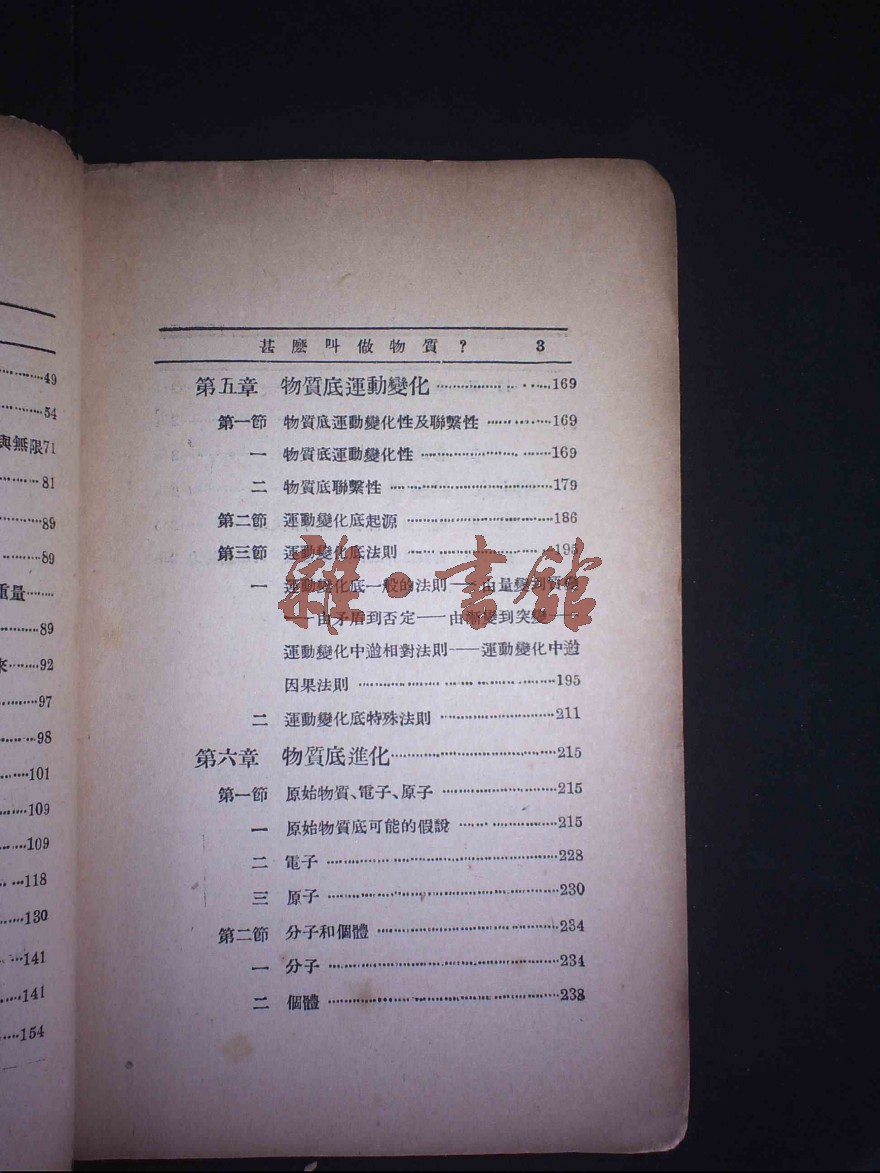 49
54
與無限71
81
89
89
重量
89
來92
97
98
101
109
109
118
130
141
141
154
甚麽叫做物質? 3
第五章 物質底運動變化……169
第一節 物質底運動變化性及聯繫性……169
一 物質底運動變化性……169
二 物質底聯繫性……179
第二節 運動變化底起源……186
第三節 運動變化底法則……195
一 運動變化底一般的法則——由量變到質變
——由矛盾到否定——由漸變到突變——
運動變化中的相對法則——運動變化中的
因果法則……195
二 運動變化底特殊法則……211
第六章 物質底進化……215
第一節 原始物質、電子、原子……215
一 原始物質底可能的假說……215
二 電子……228
三 原子……230
第二節 分子和個體……234
一 分子……234
二 個體……238
雜·書館